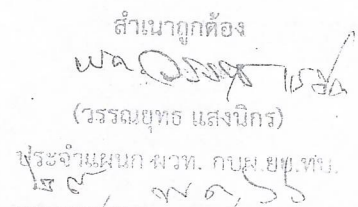 สำเนาถูกต้อง
พ.ต.
(วรรณยุทธ แสงนิกร)
ประจำแผนก ผวท. กบผ.ยย.ทบ.
๒๙ / พ.ค. / ๖๖